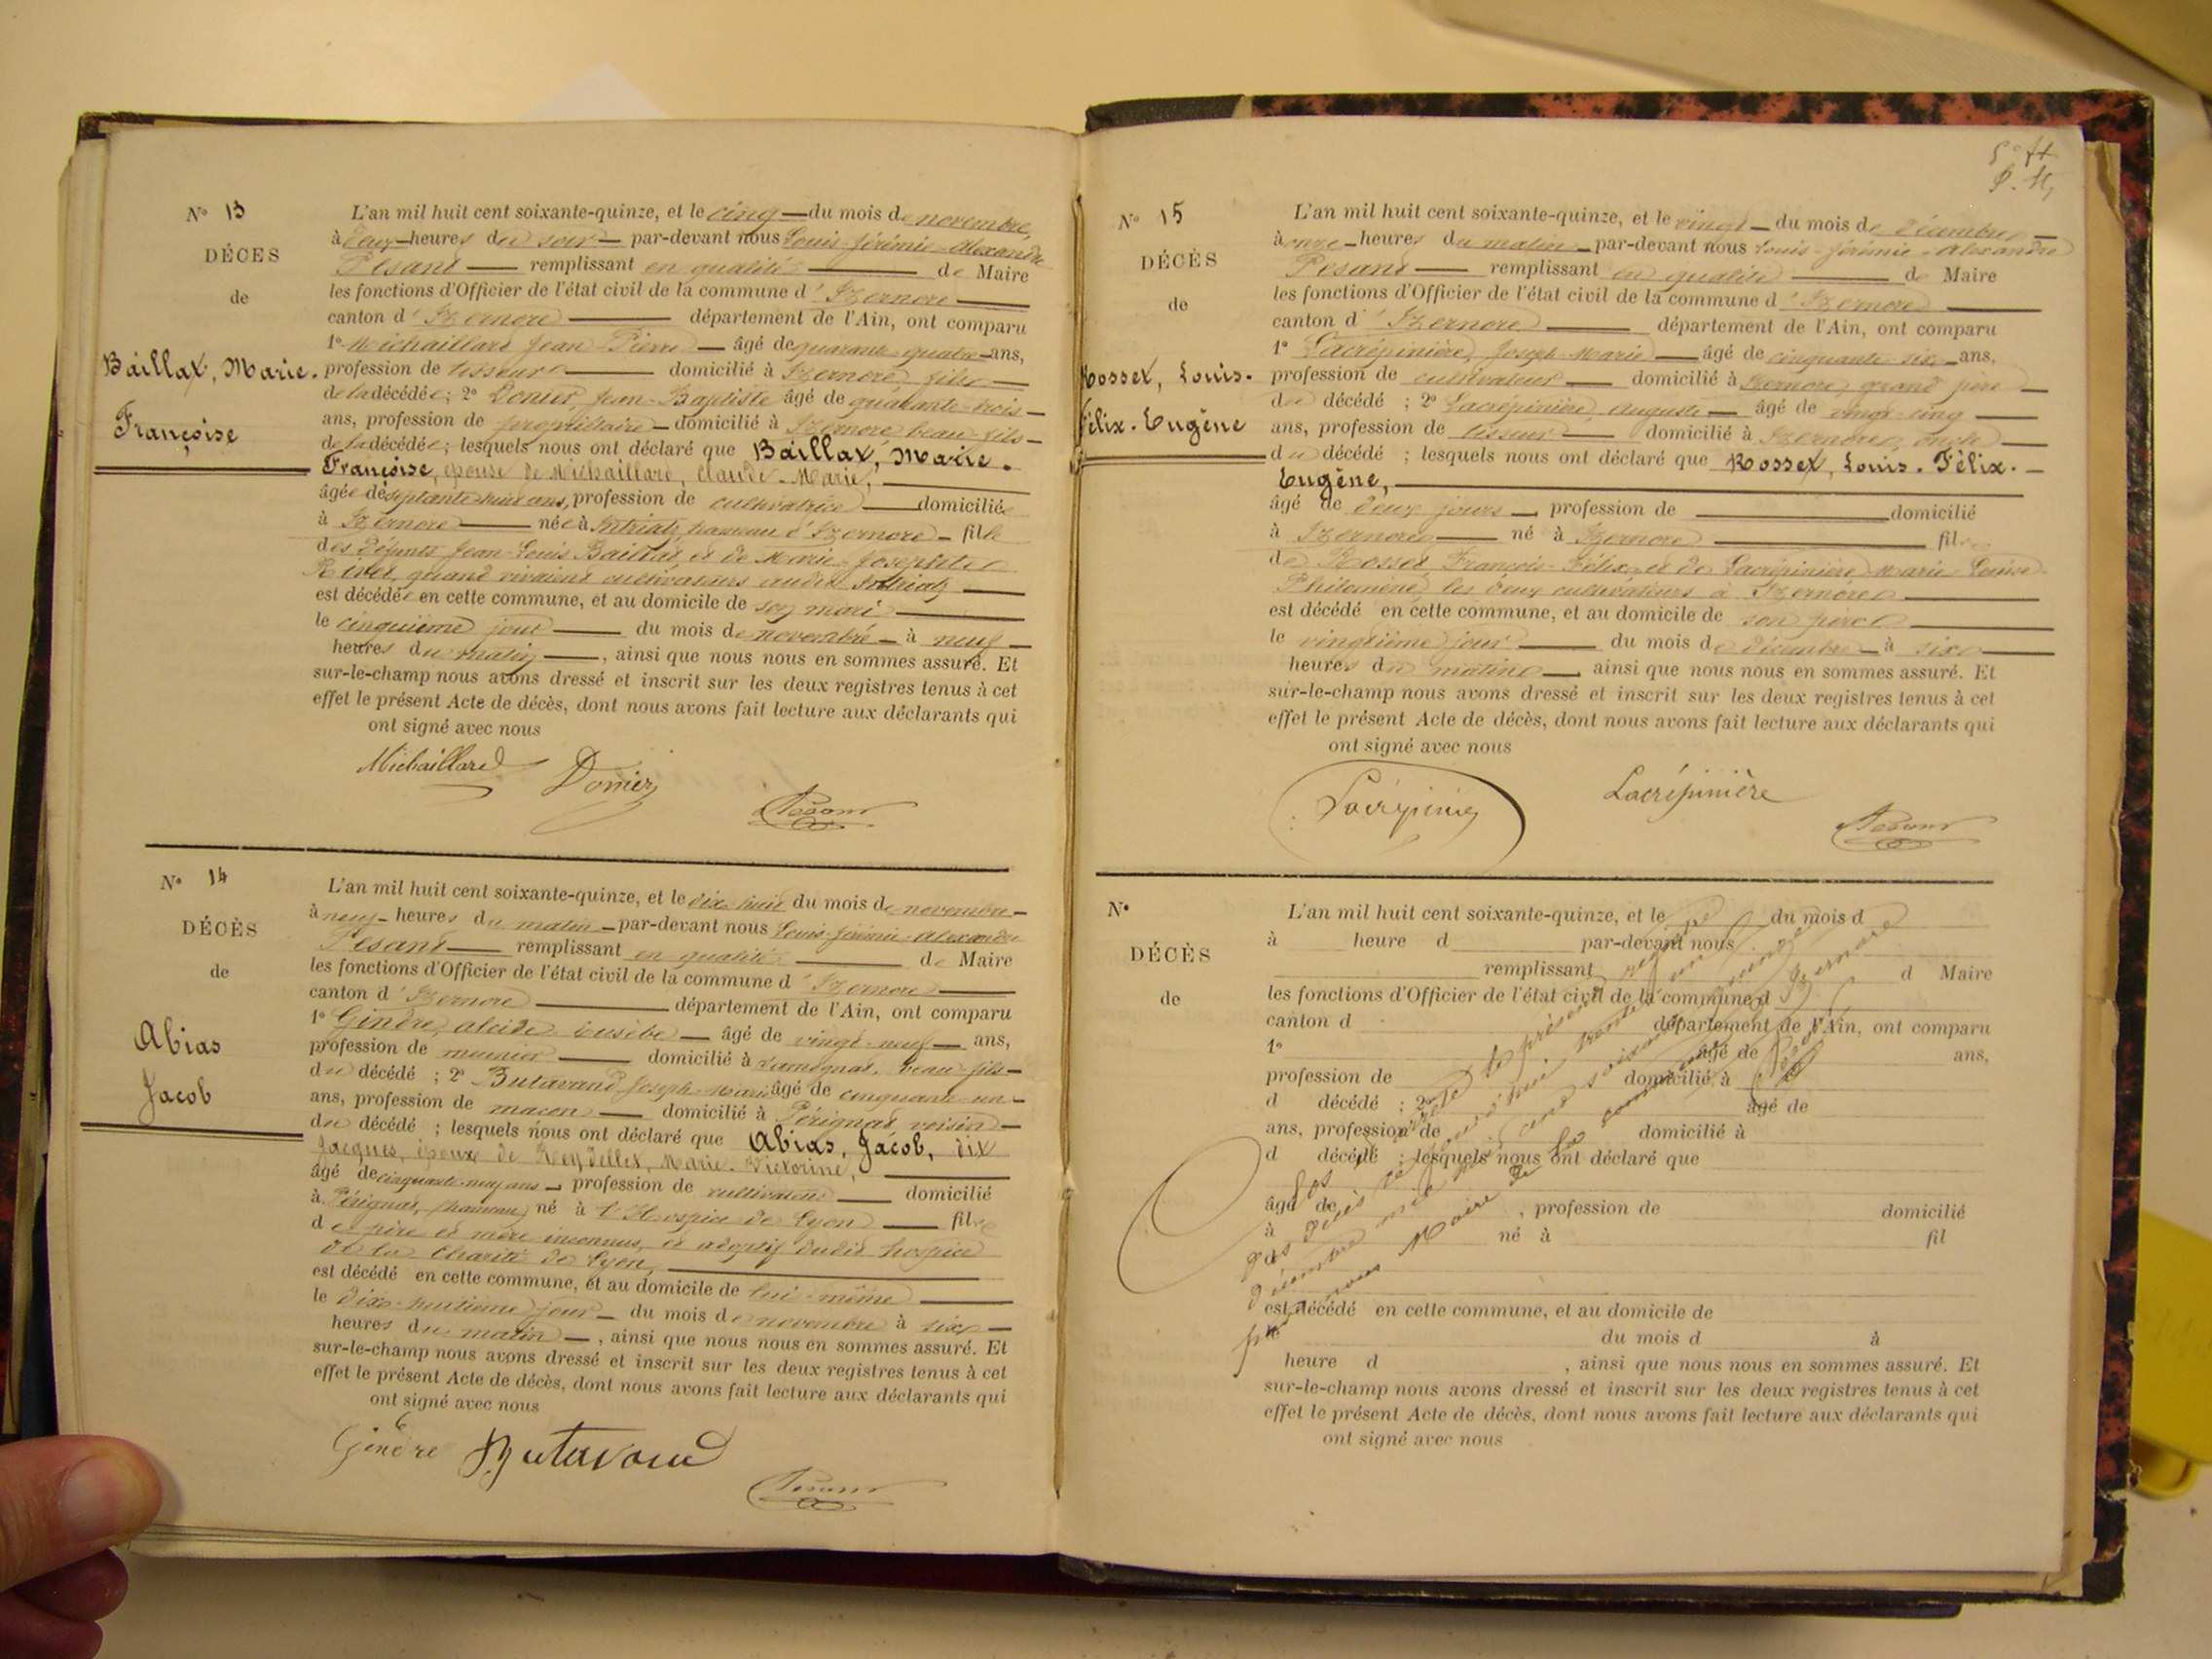 N° 13
DÉCES
de
Baillat, Marie.
Françoise
L'an mil huit cent soixante-quinze, et le cinq du mois de novembre,
à deux heures du soir par-devant nous Louis-Jérémie-Alexandre
Pesant remplissant en qualité de Maire
les fonctions d'Officier de l'état civil de la commune d'Izernore
canton d'Izernore département de l'Ain, ont comparu
1° Michaillard Jean-Pierre âgé de quarante-quatre ans,
profession de tisseur domicilié à Izernore, fils
de la décédée; 2° Donier, Jean-Baptiste âgé de quarante-trois
ans, profession de propriétaire domicilié à Izernore beau-fils
de la décédée; lesquels nous ont déclaré que Baillat, Marie.
Françoise, épouse de Michaillard, Claude-Marie,
âgée de septante-huit ans, profession de cultivatrice domiciliée
à Izernore née à Intriat, hameau d'Izernore fille
des défunts Jean-Louis Baillat et de Marie-Josephte
quand vivaient cultivateurs audit Intriat
est décédée en cette commune, et au domicile de son mari
le cinquième jour du mois de novembre à neuf
heures du matin, ainsi que nous nous en sommes assuré. Et
sur-le-champ nous avons dressé et inscrit sur les deux registres tenus à cet
effet le présent Acte de décès, dont nous avons fait lecture aux déclarants qui
ont signé avec nous
Michaillard Donier
Pesant
N° 14
DÉCÈS
de
Abias
Jacob
L'an mil huit cent soixante-quinze, et le dix-huit du mois de novembre
à neuf heures du matin par-devant nous Louis-Jérémie-Alexandre
Pesant remplissant en qualité de Maire
les fonctions d'Officier de l'état civil de la commune d'Izernore
canton d'Izernore département de l'Ain, ont comparu
1° Gindre, alcide eusèbe âgé de vingt-neuf ans,
profession de meunier domicilié à Samognat, beau-fils
du décédé; 2° Butavand Joseph-Marie âgé de cinquante-un
ans, profession de macon domicilié à Pérignat, voisin
du décédé; lesquels nous ont déclaré que Abias, Jacob, dit
Jacques, époux de Reydellet, Marie-Victorine,
âgé de cinquante-neuf ans profession de cultivateur domicilié
à Pérignat, (hameau) né à l'Hospice de Lyon fils
de père et mère inconnus, et adoptif dudit hospice
de la Charité de Lyon,
est décédé en cette commune, et au domicile de lui-même
le dix-huitième jour du mois de novembre à six
heures du matin, ainsi que nous nous en sommes assuré. Et
sur-le-champ nous avons dressé et inscrit sur les deux registres tenus à cet
effet le présent Acte de décès, dont nous avons fait lecture aux déclarants qui
ont signé avec nous
Gindre Butavand
Pesant
N° 15
DÉCÈS
de
Rosset, Louis.
Félix. Eugène
L'an mil huit cent soixante-quinze, et le vingt du mois de décembre
à onze heures du matin par-devant nous Louis-Jérémie-Alexandre
Pesant remplissant en qualité de Maire
les fonctions d'Officier de l'état civil de la commune d'Izernore
canton d'Izernore département de l'Ain, ont comparu
1° Lacrépinière, Joseph-Marie âgé de cinquante-six ans,
profession de cultivateur domicilié à Izernore, grand père
du décédé; 2° Lacrépinière, Auguste âgé de vingt-cinq
ans, profession de tisseur domicilié à Izernore, oncle
du décédé; lesquels nous ont déclaré que Rosset, Louis. Félix.
Eugène,
âgé de deux jours, profession de domicilié
à Izernore né à Izernore fils
de Rosset François-Félix, et de Lacrépinière Marie-Louise
Philomène, les deux cultivateurs à Izernore
est décédé en cette commune, et au domicile de son père
le vingtième jour du mois de décembre à six
heures du matin, ainsi que nous nous en sommes assuré. Et
sur-le-champ nous avons dressé et inscrit sur les deux registres tenus à cet
effet le présent Acte de décès, dont nous avons fait lecture aux déclarants qui
ont signé avec nous
Lacrépinière
Pesant
N°
DÉCÈS
de
L'an mil huit cent soixante-quinze, et le du mois d
à heure d par-devant nous
remplissant d Maire
les fonctions d'Officier de l'état civil de la commune d
canton d département de l'Ain, ont comparu
1° âgé de ans,
profession de domicilié à
d décédé ; 2° âgé de
ans, profession de domicilié à
d décédé ; lesquels nous ont déclaré que
âgé de , profession de domicilié
à né à fil
d
est décédé en cette commune, et au domicile de
le du mois d à
heure d , ainsi que nous nous en sommes assuré. Et
sur-le-champ nous avons dressé et inscrit sur les deux registres tenus à cet
effet le présent Acte de décès, dont nous avons fait lecture aux déclarants qui
ont signé avec nous
Clos et arrêté le présent registre
des décès ce jourd'hui trente-un
décembre mil huit cent soixante-quinze
par nous Maire de la commune d'Izernore
Pesant